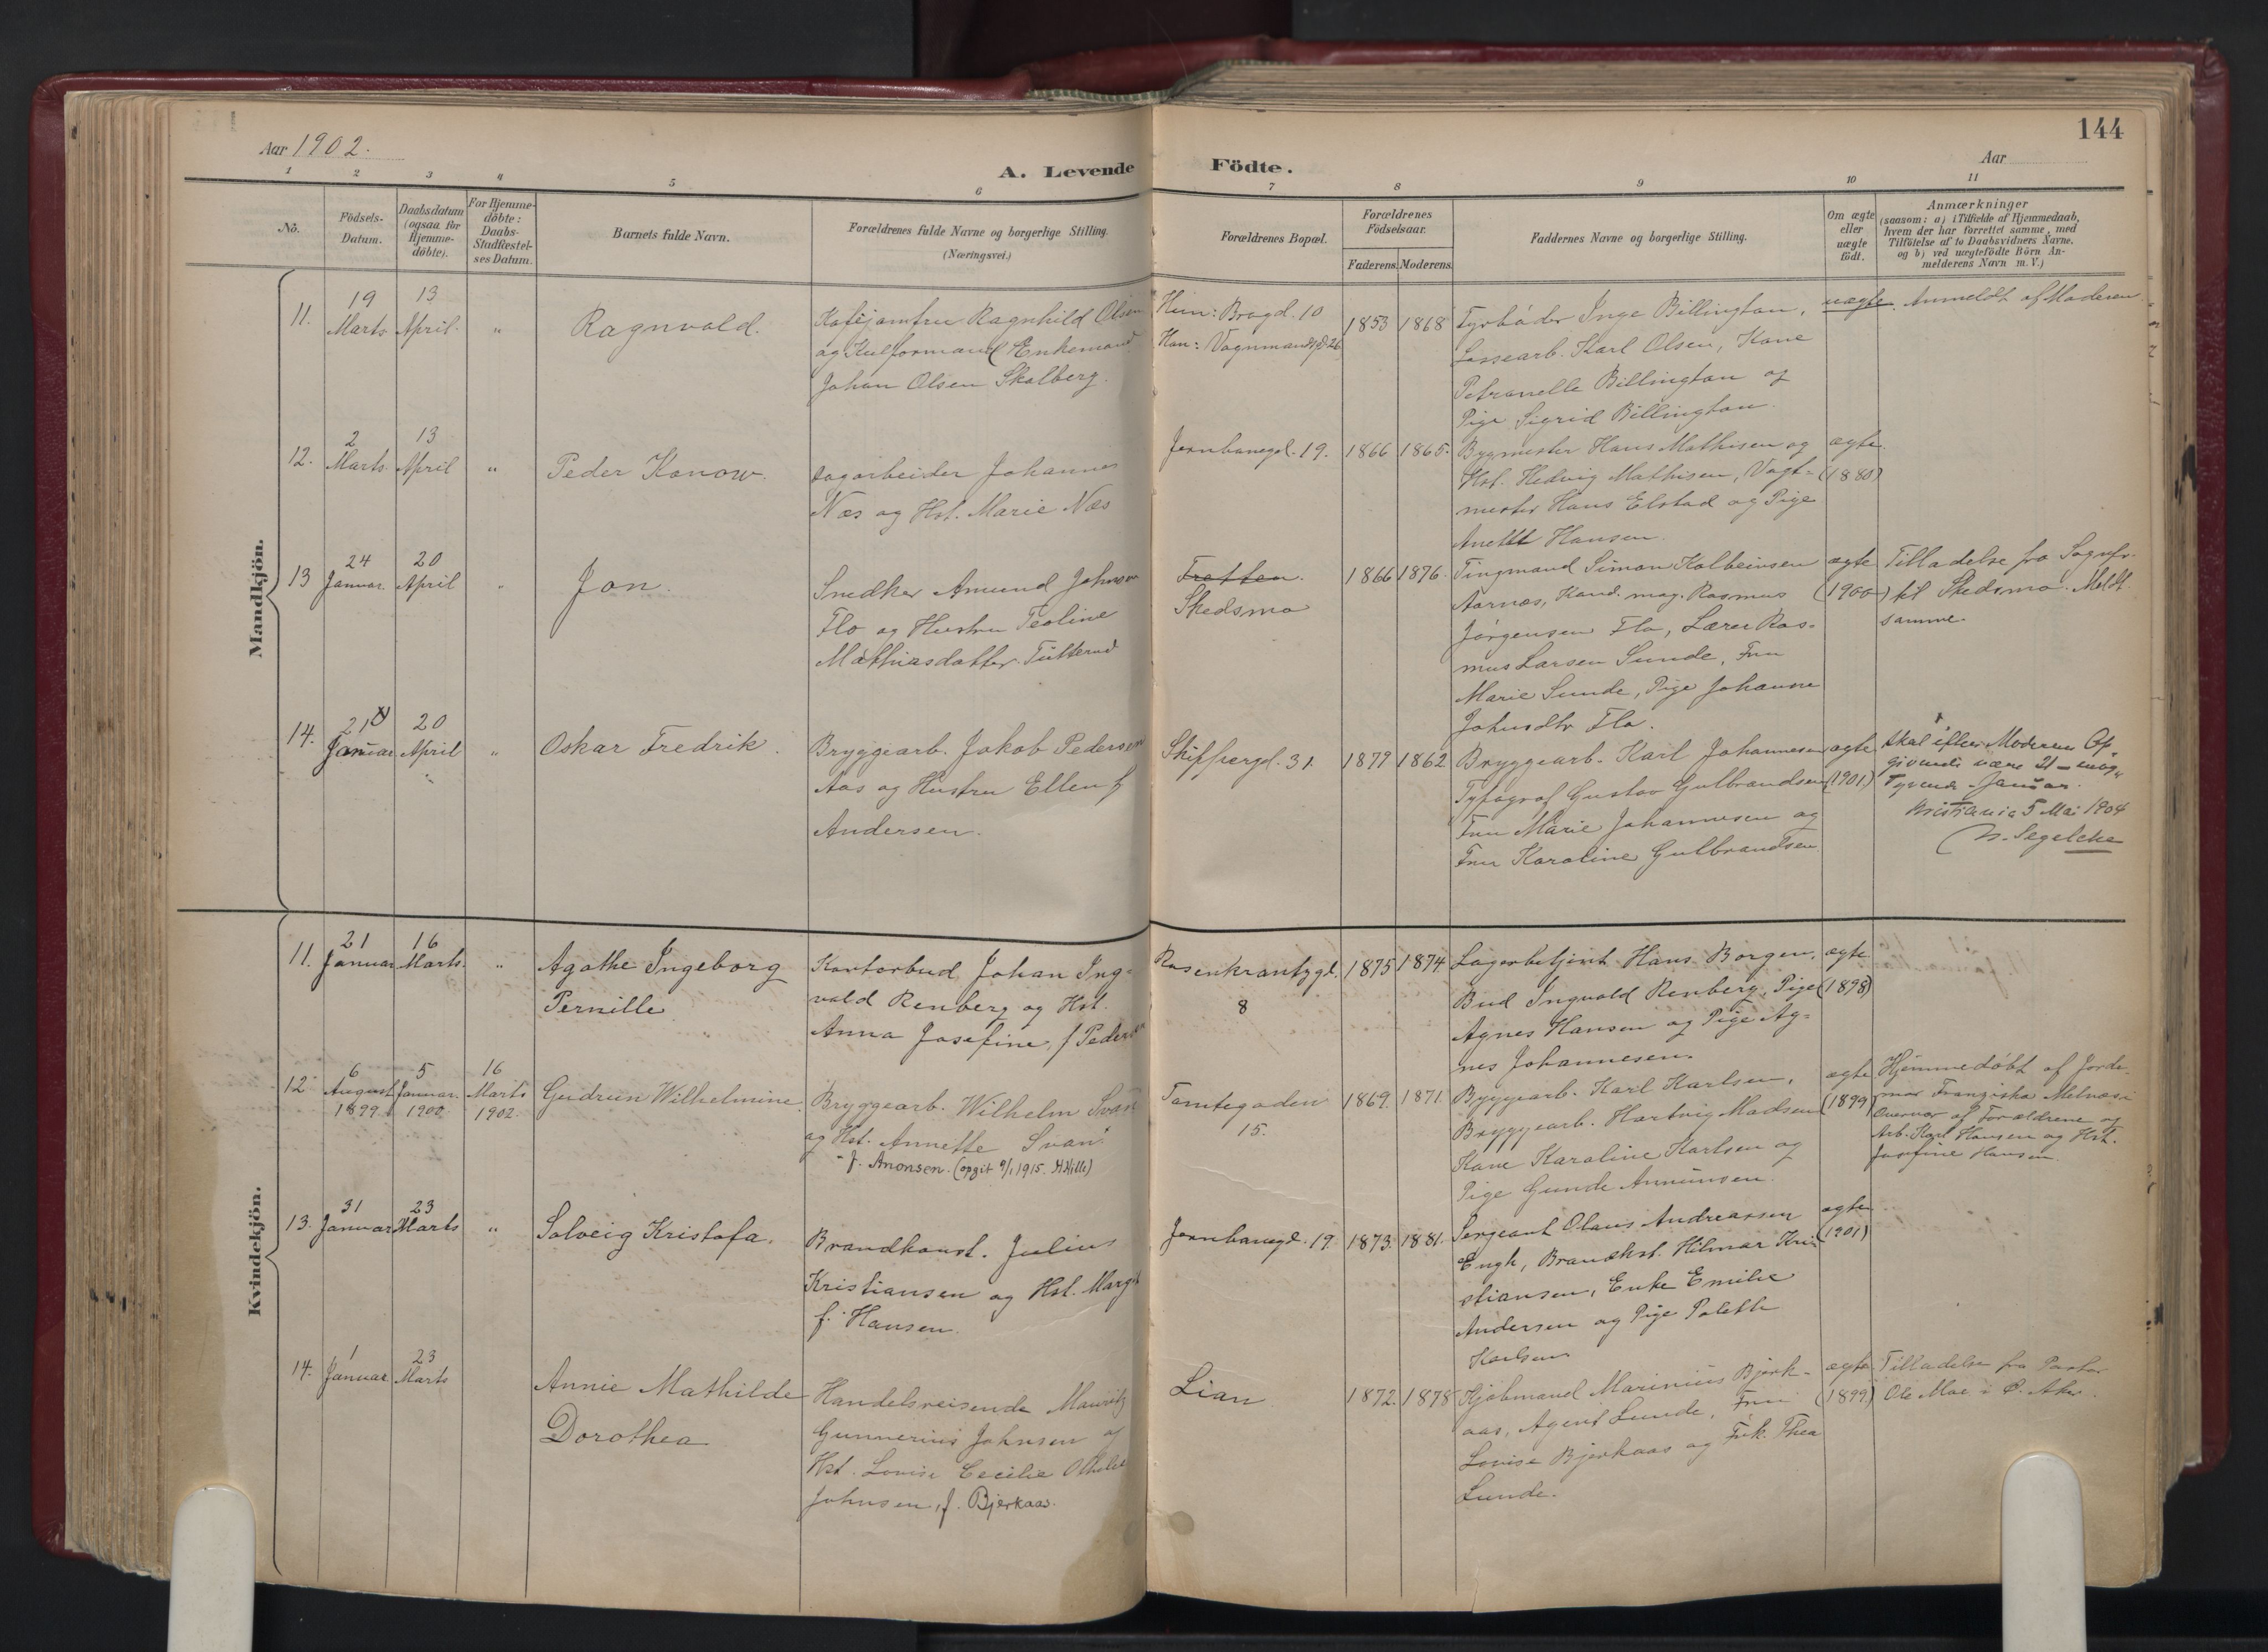 144
Aar 1902.
Aar
A. Levende Födte.
1 2 3 4 5 6 7 8 9 10 11
Nö.
Födsels-Datum.
Daabsdatum (ogsaa for Hjemme-döbte).
For Hjemme-döbte: Daabs-Stadfæstel-ses Datum.
Barnets fulde Navn.
Forældrenes fulde Navne og borgerlige Stilling.
(Næringsvei.)
Forældrenes Bopæl.
Forældrenes Födselsaar.
Faderens. Moderens.
Faddernes Navne og borgerlige Stilling.
Om ægte eller uægte födt.
Anmærkninger
(saasom: a) i Tilfælde af Hjemmedaab,
hvem der har forrettet samme, med
Tilföielse af to Daabsvidners Navne.
og b) ved uægtefödte Börn An-
melderens Navn m. V.)
Mandkjön.
11.
19 Marts
13 April.
"
Ragnvald.
Kafejomfru Ragnhild Olsen
og Kulformand Enkemand
Johan Olsen Skalberg.
Hun: Brogd. 10
Han: Vognmandsgd 26
1853
1868
Fyrböder Inge Billington,
Lossearb. Karl Olsen, Kone
Petronelle Billington og
Pige Sigrid Billington.
uægte.
Anmeldt af Moderen
12.
2 Marts
13 April
"
Peder Konow.
Dagarbeider Johannes
Næs og Hst. Marie Næs
Jernbanegd. 19.
1866
1865.
Bygmester Hans Mathisen og
Hst. Hedvig Mathisen, Vagt-
mester Hans Elstad og Pige
Anette Hansen.
ægte
(1880)
13
24 Januar.
20 April
"
Jon.
Snedker Amund Johnson
Flo og Hustru Teoline
Mathiasdatter Tutterud
Tretten.
Skedsmo
1866
1876.
Tingmand Simon Kolbeinsen
Aarnæs, Kand. mag. Rasmus
Jörgensen Flo, Lærer Ras-
mus Larsen Sunde, Fru
Marie Sunde, Pige Johanne
Johnsdtr Flo.
ægte
(1900)
Tilladelse fra Sognepr.
til Skedsmo. Meldt
samme.
14.
21 Januar
20 April
"
Oskar Fredrik.
Bryggearb. Jakob Pedersen
Aas og Hustru Ellen f
Andersen.
Skippergd. 31.
1879
1862
Bryggearb. Karl Johannesen
Typograf Gustav Gulbrandsen
Fru Marie Johannesen og
Fru Karoline Gulbrandsen
ægte
(1901)
skal efter Moderens Op-
givende være 21 – enog-
tyvende Januar.
Kristiania 5 Mai 1904
N. Segelcke
Kvindekjön.
11.
21 Januar
16 Marts.
"
Agathe Ingeborg
Pernille
Kontorbud Johan Ing-
vald Renberg og Hst.
Anna Josefine, f Pedersen
Rosenkrantzgd.
8
1875
1874
Lagerbetjent Hans Borgen,
Bud Ingvald Renberg, Pige
Agnes Hansen og Pige Ag-
nes Johannesen.
ægte
(1898)
12
6 August 1899
5 Januar. 1900
16 Marts 1902.
Gudrun Wilhelmine.
Bryggearb. Wilhelm Svan
og Hst. Annette Svan
f. Anonsen. (opgit 9/1 1915. H. Hille)
Tomtegaden
15.
1869.
1871.
Byggearb. Karl Karlsen,
Bryggearb. Hartvig Madsen
Kone Karoline Karlsen og
Pige Gunde Annunsen.
ægte
(1899)
Hjemmedöbt af Jorde-
mor Franziska Melnæs i
Overvær af Forældrene og
Arb. Karl Hansen og Hst.
Josefine Hansen.
13.
31 Januar
23 Marts
"
Solveig Kristofa.
Brandkonst. Julius
Kristiansen og Hst. Margit
f. Hansen.
Jernbanegd. 19.
1873.
1881.
Sergeant Olaus Andreassen
Engh, Brandkst. Hilmar Kri-
stiansen, Enke Emilie
Andersen og Pige Palette
Karlsen
ægte
(1901)
14.
1 Januar
23 Marts
Annie Mathilde
Dorothea
Handelsreisende Mauritz
Gunnerius Johnsen og
Hst. Lovise Cecilie Othilie
Johnsen, f. Bjerkaas.
Lian
1872.
1878
Kjöbmand Marinius Bjerk-
aas, Agent Lunde, Fru
Lovise Bjerkaas og Frk. Thea
Lunde.
ægte
(1899.)
Tilladelse fra Pastor
Ole Moe i Ö. Aker.